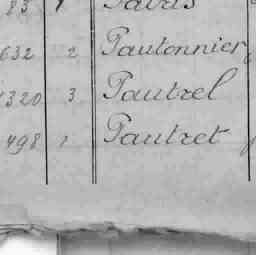 632 2 Pautonnier
1320 3 Pautrel
498 1 Pautret